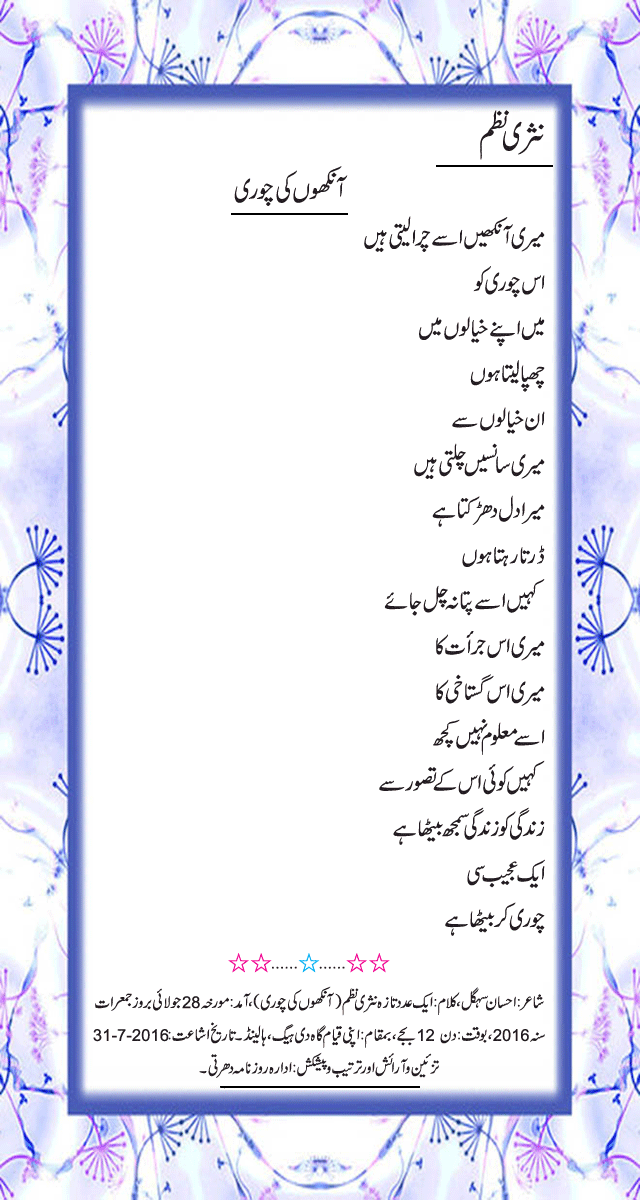 نثری نظم
آنکھوں کی چوری
میری آنکھیں اسے چرا لیتی ہیں
اس چوری کو
میں اپنے خیالوں میں
چھپا لیتا ہوں
ان خیالوں سے
میری سانسیں چلتی ہیں
میرا دل دھڑکتا ہے
ڈرتا رہتا ہوں
کہیں اسے پتا نہ چل جائے
میری اس جرأت کا
میری اس گستاخی کا
اسے معلوم نہیں کچھ
کہیں کوئی اس کے تصور سے
زندگی کو زندگی سمجھ بیٹھا ہے
ایک عجیب سی
چوری کر بیٹھا ہے
☆☆......☆......☆☆
شاعر: احسان سہگل، کلام: ایک عدد تازہ نثری نظم (آنکھوں کی چوری)، آمد: مورخہ 28 جولائی بروز جمعرات
سنہ 2016، بوقت: دن 12 بجے، بمقام: اپنی قیام گاہ دی ہیگ، ہالینڈ۔ تاریخ اشاعت: 2016-7-31
تزئین و آرائش اور ترتیب و پیشکش: ادارہ روزنامہ دھرتی۔